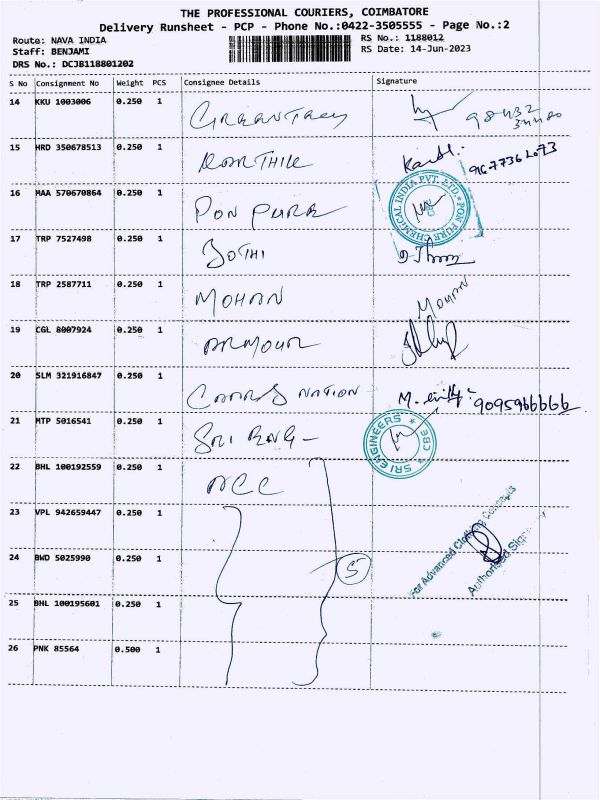 THE PROFESSIONAL COURIERS, COIMBATORE
Delivery Runsheet - PCP - Phone No.:0422-3505555 - Page No.:2
Route: NAVA INDIA RS No.: 1188012
Staff: BENJAMI RS Date: 14-Jun-2023
DRS No.: DCJB118801202
S No Consignment No Weight PCS Consignee Details Signature
14 KKU 1003006 0.250 1
15 HRD 350678513 0.250 1 KARTHIK
16 MAA 570670864 0.250 1 PON PURE
PON PURE CHEMICAL INDIA PVT. LTD.
17 TRP 7527498 0.250 1 JOTHI
18 TRP 2587711 0.250 1 MOHAN MOHAN
19 CGL 8007924 0.250 1 ARMOUR
20 SLM 321916847 0.250 1 NATION 9095966666
21 MTP 5016541 0.250 1 SRI ENGG -
SRI ENGINEERS CBE
22 BHL 100192559 0.250 1 ACC
23 VPL 942659447 0.250 1
24 BWD 5025990 0.250 1 5
For Advanced Clothing Concepts
25 BHL 100195601 0.250 1
26 PNK 85564 0.500 1